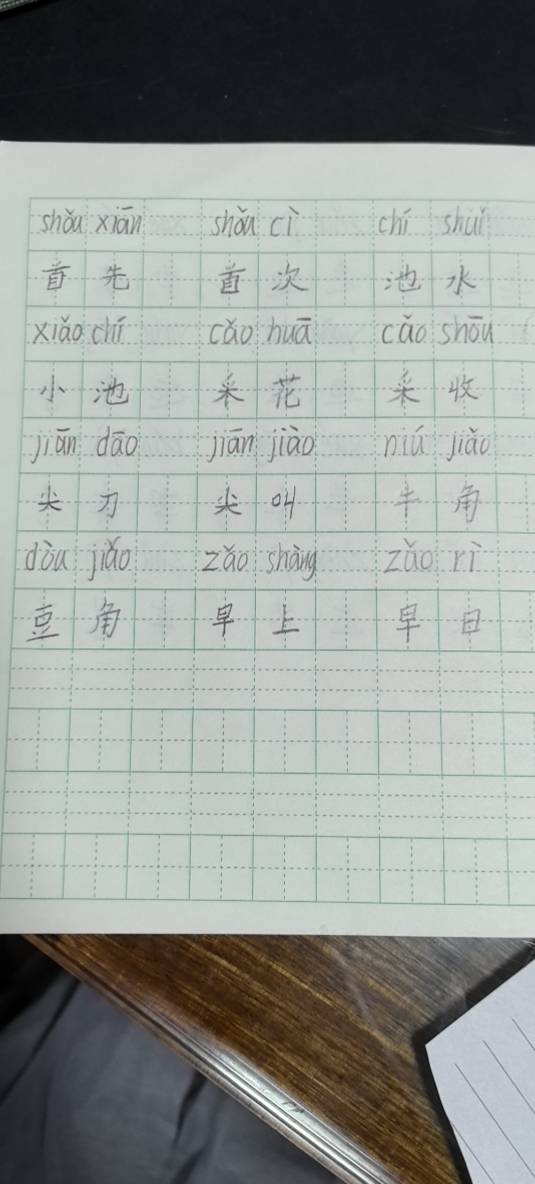 shǒu xiān shǒu cì chí shuǐ
首先 首次 池水
xiǎo chí cǎo huā cǎo shōu
小池 采花 采收
jiān dāo jiān jiào niú jiǎo
尖刀 尖叫 牛角
dòu jiǎo zǎo shàng zǎo rì
豆角 早上 早日